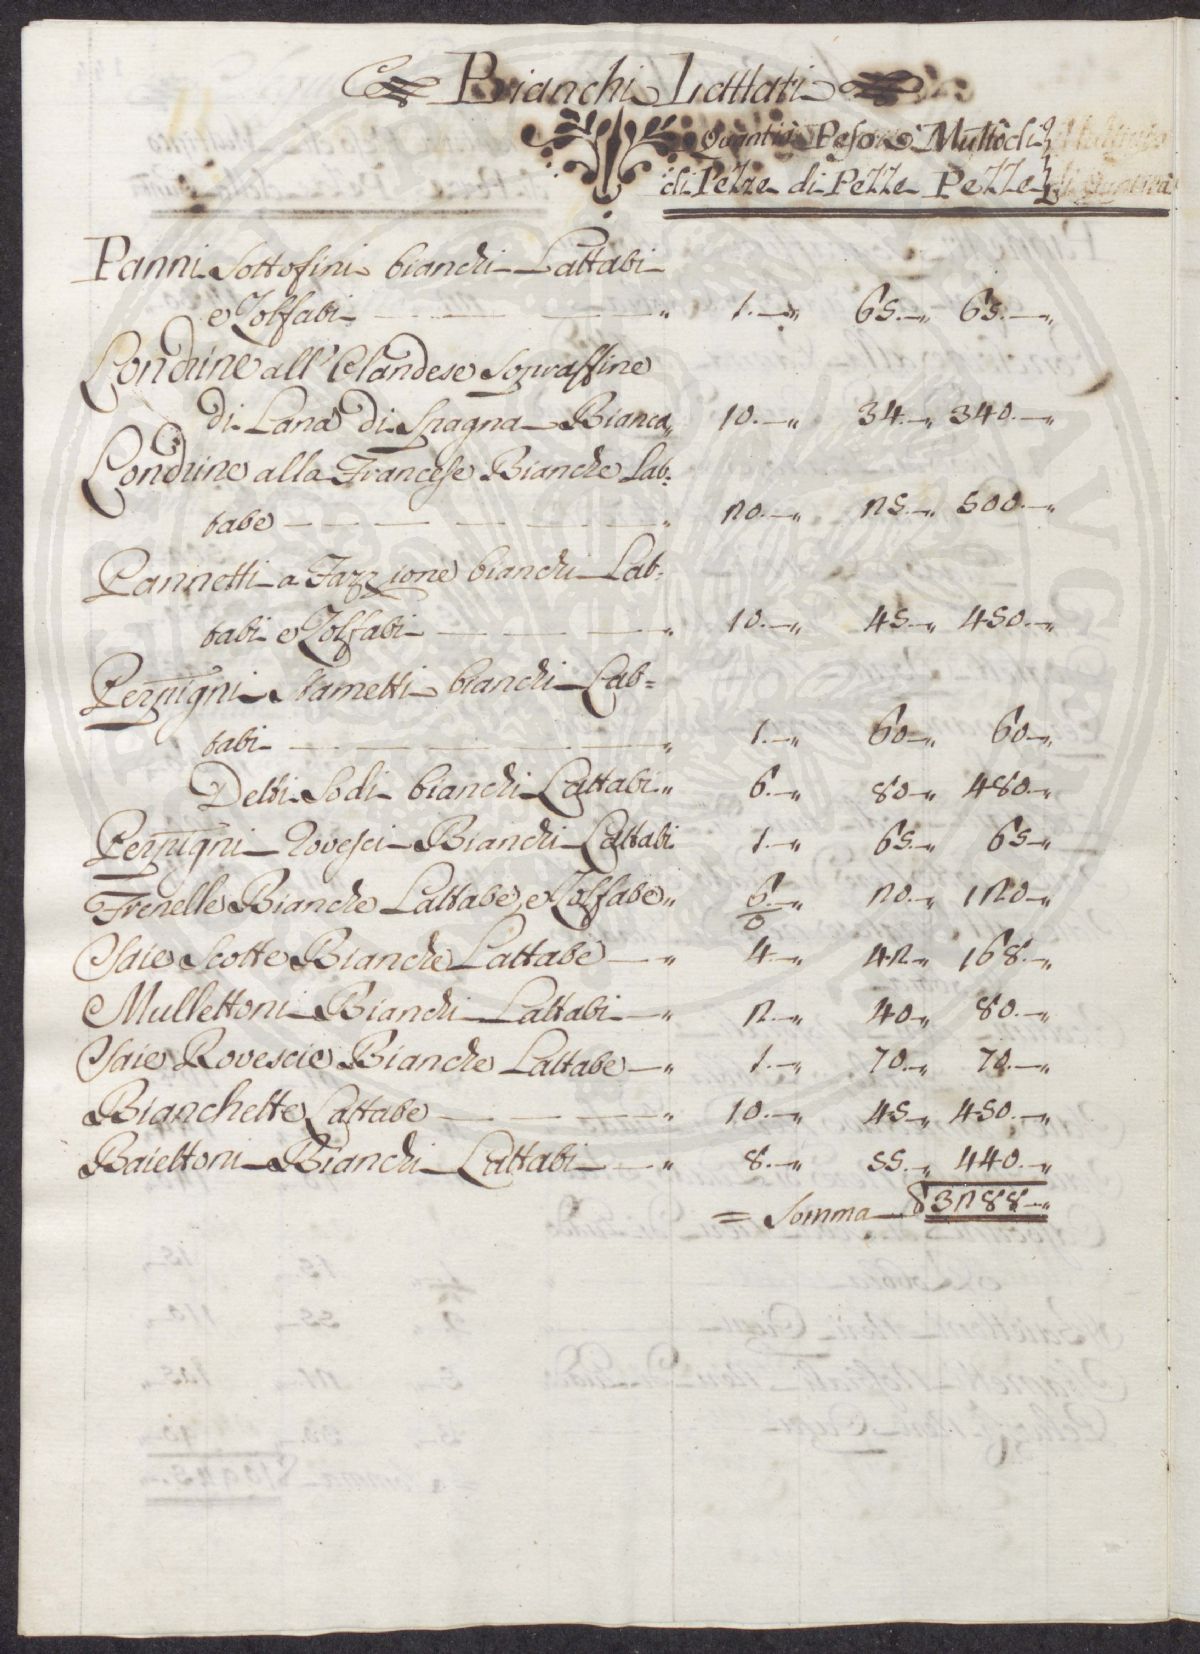 Bianchi Lattati
Quantità Peson Multo di
di Pezze di Pezze Pezze
Panni Sottofini bianchi Lattati
e Zolfati " 1. " 65. " 65. "
Londrine all'Olandese Sopraffine
di Lana di Spagna Bianca " 10. " 34. " 340. "
Londrine alla Francese Bianche Lat=
tate " 20. " 25. " 500. "
Pannetti a Fazzione bianchi Lat=
tati e Zolfati " 10. " 45. " 450. "
Perpigni Stametti bianchi Lat=
tati " 1. " 60 " 60 "
Detti Sodi bianchi Lattati " 6. " 80 " 480 "
Perpigni Rovesci Bianchi Lattati 1. " 65. " 65 "
Frenelle Bianche Lattate, e Zolfate " 6. " 20. " 120 "
0
Saie Scotte Bianche Lattate " 4. " 42 " 168. "
Mullettoni Bianchi Lattati " 2. " 40 " 80. "
Saie Rovescie Bianche Lattate " 1. " 70. " 70. "
Bianchette Lattate " 10. " 45 " 450. "
Baiettoni Bianchi Lattati " 8. " 55. " 440. "
= Somma 3288 "